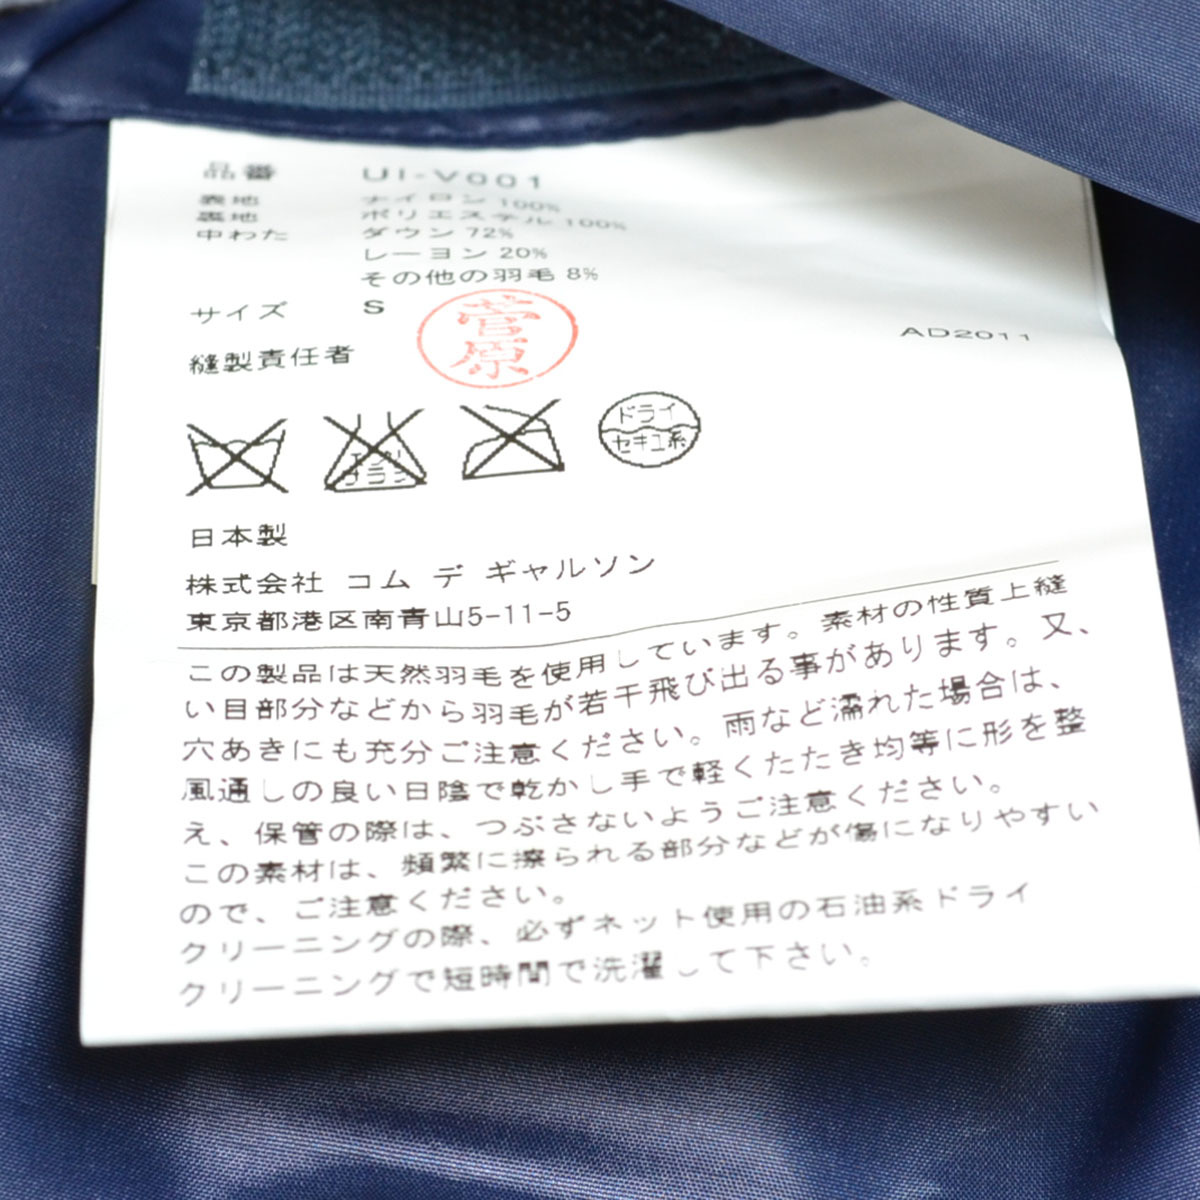 品番 UI-V001
表地 ナイロン 100%
裏地 ポリエステル 100%
中わた ダウン 72%
レーヨン 20%
その他の羽毛 8%
サイズ S
菅原
AD2011
縫製責任者
エンソサラシ
ドライ
セキユ系
日本製
株式会社 コム デ ギャルソン
東京都港区南青山5-11-5
この製品は天然羽毛を使用しています。素材の性質上縫
い目部分などから羽毛が若干飛び出る事があります。又、
穴あきにも充分ご注意ください。雨など濡れた場合は、
風通しの良い日陰で乾かし手で軽くたたき均等に形を整
え、保管の際は、つぶさないようご注意ください。
この素材は、頻繁に擦られる部分などが傷になりやすい
ので、ご注意ください。
クリーニングの際、必ずネット使用の石油系ドライ
クリーニングで短時間で洗濯して下さい。